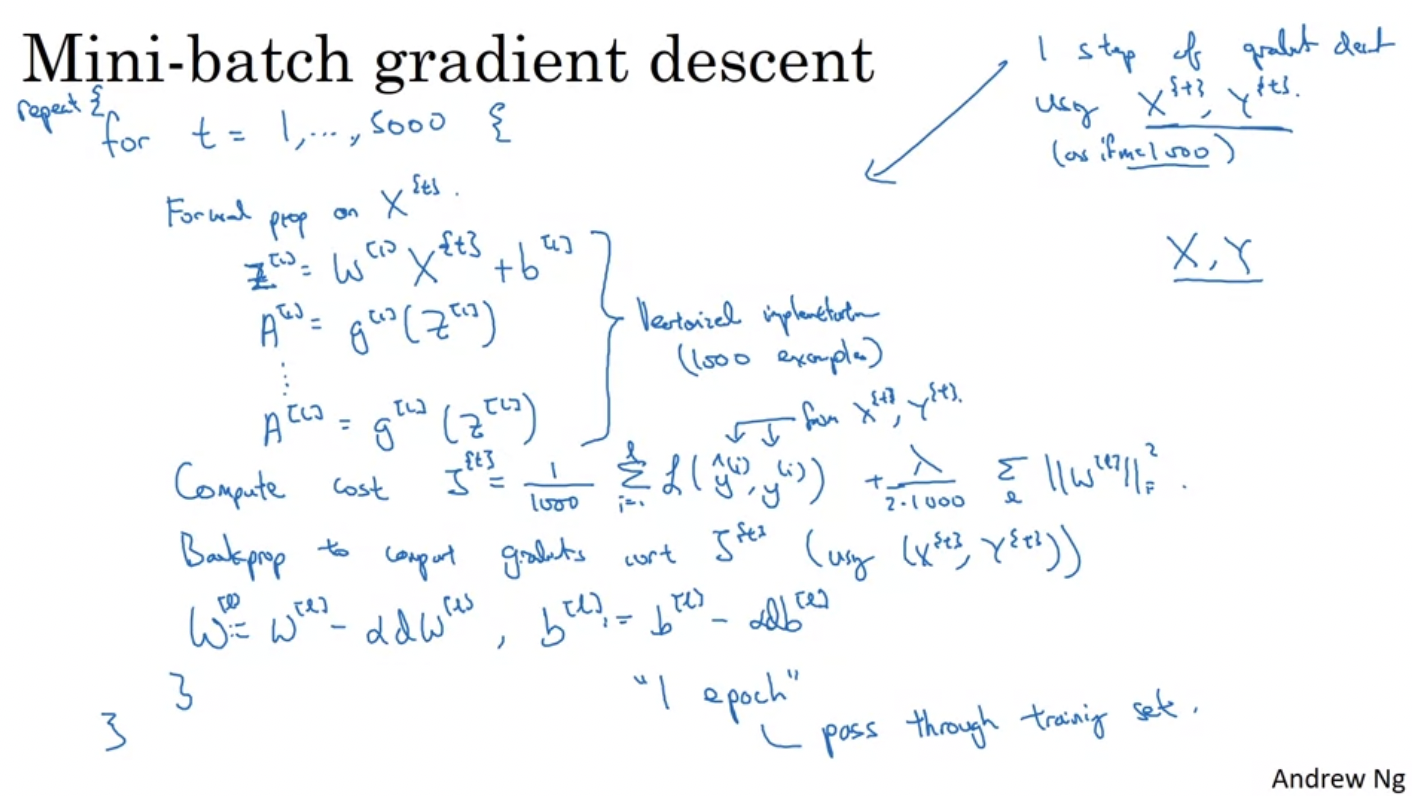 Mini-batch gradient descent
repeat {
for t = 1, ..., 5000 {
1 step of gradient descent
using X^{t}, Y^{t}.
(as if m=1000)
X, Y
Forward prop on X^{t}.
Z^[1] = W^[1] X^{t} + b^[1]
A^[1] = g^[1](Z^[1])
⋮
A^[L] = g^[L](Z^[L])
Vectorized implementation
(1000 examples)
from X^{t}, Y^{t}.
Compute cost J^{t} = 1/1000 Σ_{i=1}^{l} L(ŷ^(i), y^(i)) + λ/(2·1000) Σ_l ||W^[l]||_F^2.
Backprop to compute gradients wrt J^{t} (using (X^{t}, Y^{t}))
W^[l] := W^[l] - αdW^[l], b^[l] := b^[l] - αdb^[l]
}
}
"1 epoch"
pass through training set.
Andrew Ng